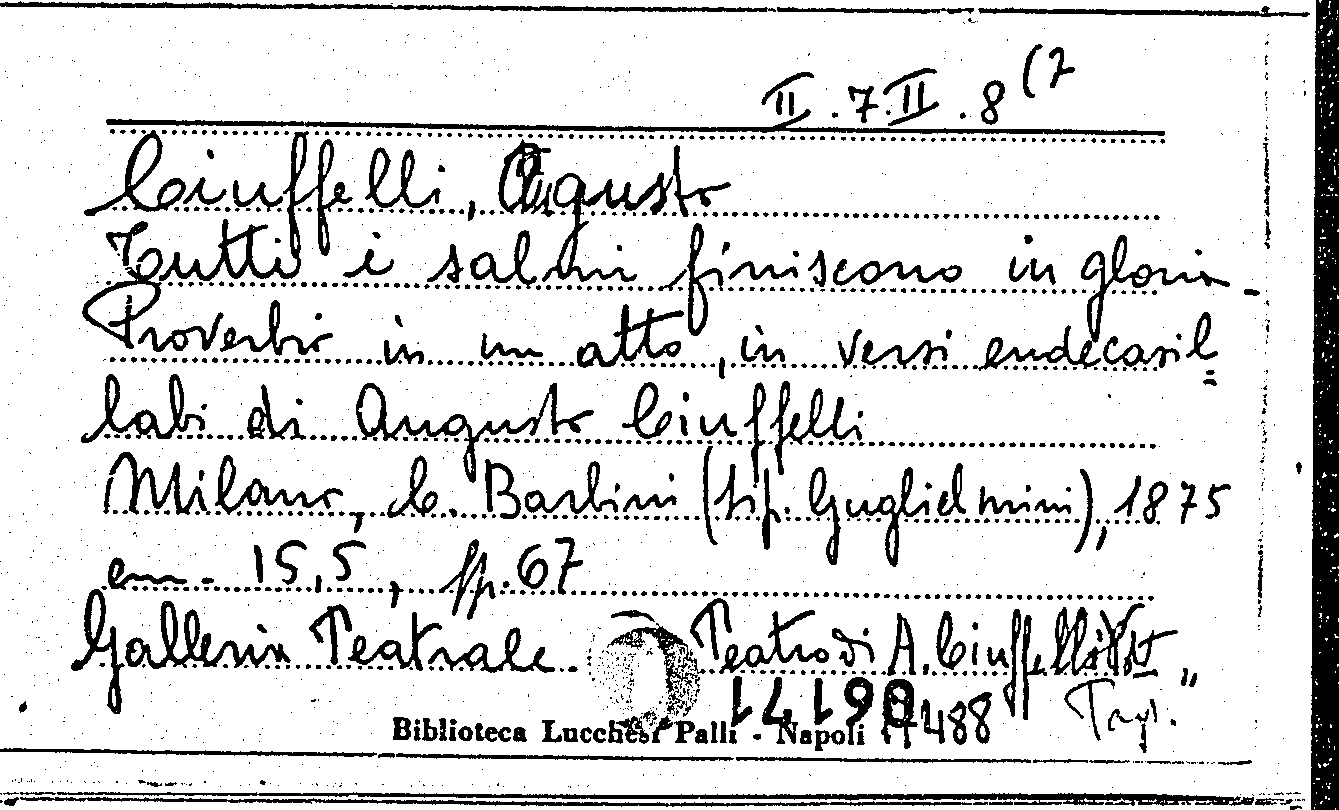 II.7.II.8(2
Ciuffelli, Augusto
Tutti i salmi finiscono in gloria -
Proverbio in un atto, in versi endecasil=
labi di Augusto Ciuffelli
Milano, C. Barbini (tip. Guglielmini), 1875
cm. 15,5, pp. 67
Galleria Teatrale. Teatro di A. Ciuffelli
Biblioteca Lucchesi Palli - Napoli